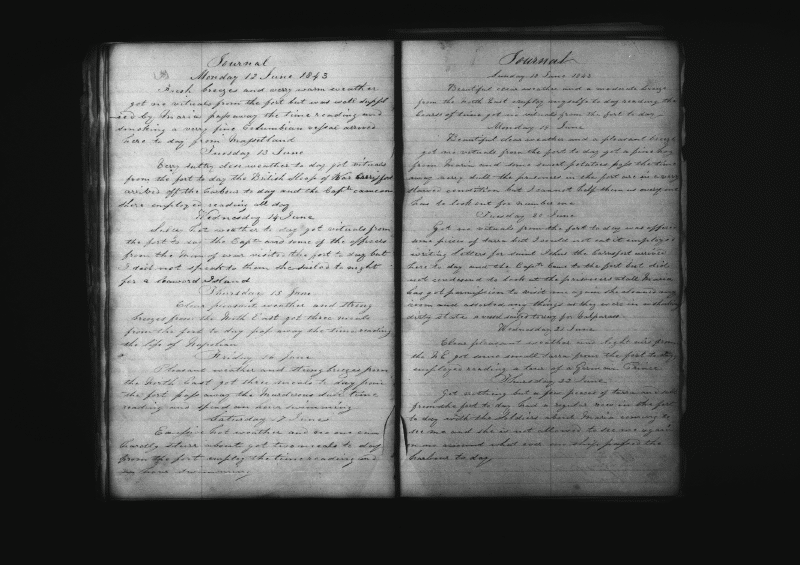 Journal
Monday 12 June 1843
Fresh breezes and verry warm weather
got no vituals from the fort but was well suppl
ied by Maria pass away the time reading and
smoking a verry fine Columbian vessel arrived
here to day from
Tuesday 13 June
Verry sultry close weather to day got vituals
from the fort to day the British Sloop of War
arrived off the harbour to day and the Capt came on
shore employed reading all day
Wednesday 14 June
hot weather to day got vituals from
the fort to day the Capt and some of the officers
from the man of war visited the fort to day but
I did not speak to them She sailed to night
for a Leeward Island
Thursday 15 June
Clear pleasant weather and strong
breezes from the North East got three meals
from the fort to day pass away the time reading
the life of Napolian
Friday 16 June
Pleasant weather and strong breezes from
the North East got three meals to day from
the fort pass away the time
reading and spend an hour swimming
Saturday 17 June
hot weather and no one can
hardly stir about got two meals to day
from the fort employ the time reading and
an hour swimming
Journal
Sunday 18 June 1843
Beautiful clear weather and a moderate breeze
from the North East employ myself to day reading the
to day
Monday 19 June
Beautiful clear weather and a pleasant breeze
got no vituals from the fort to day got a fine
from Maria and some sweet potatoes pass the time
away verry dull the prisoners in the fort are in a verry
starved condition but I cannot help them as every one
has to look out for number one
Tuesday 20 June
Got no vituals from the fort to day was offered
some pieces of tarra but I could not eat it employed
writing letters for
here to day and the Capt came to the fort but did
not condesend to look at the prisoners at all Maria
has got permission to visit me again she cleaned my
room and washed my things as they were in a
dirty state
Wednesday 21 June
Clear pleasant weather and light airs from
the N.E. got some small tarra from the fort to day
employed reading a tale of a German Prince
Thursday 22 June
Got nothing but a few pieces of tarra
from the fort to day had a regular row in the fort
to day with the Soldiers about Maria coming to
see me and she is not allowed to see me again
ship passed the
harbour to day